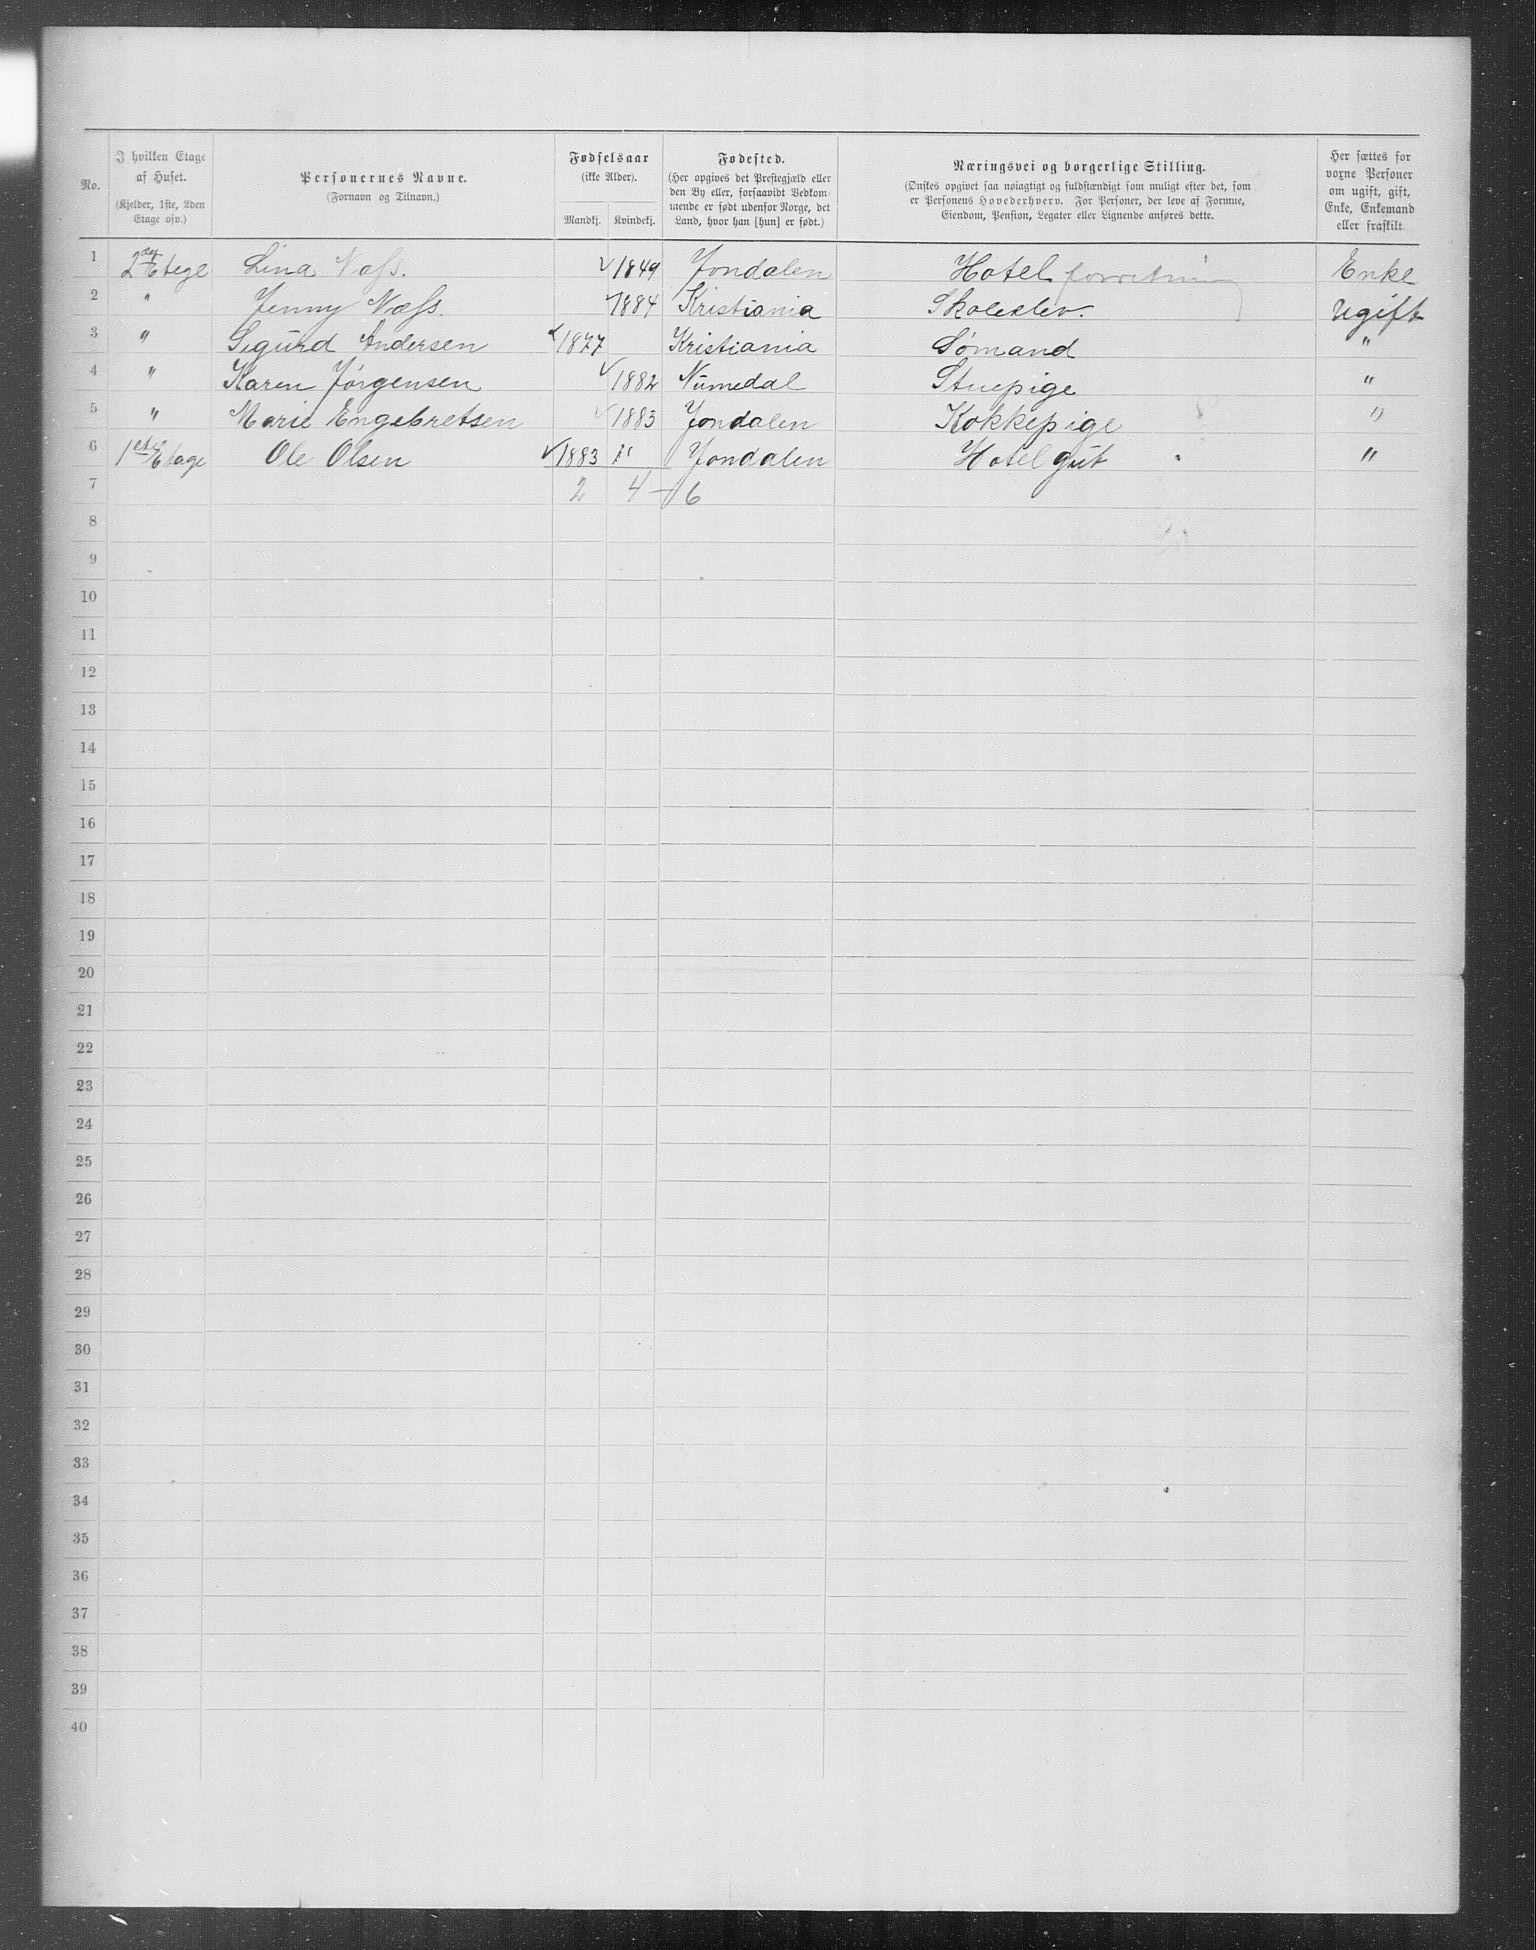 No.
I hvilken Etage af Huset. (Kjelder, 1ste, 2den Etage osv.)
Personernes Navne. (Fornavn og Tilnavn.)
Fødselsaar (ikke Alder).
Mandkj. Kvindekj.
Fødested. (Her opgives det Prestegjæld eller den By eller, forsaavidt Vedkommende er født udenfor Norge, det Land, hvor han [hun] er født.)
Næringsvei og borgerlige Stilling. (Ønskes opgivet saa nøiagtigt og fuldstændigt som muligt efter det, som er Personens Hovederhverv. For Personer, der leve af Formue, Eiendom, Pension, Legater eller Lignende anføres dette.
Her sættes for voxne Personer om ugift, gift, Enke, Enkemand eller fraskilt.
1 2den Etege Lina Næss. 1849 Jondalen Hotel forretning Enke
2 " Jenny Næss. 1884 Kristiania Skoleelev. Ugift
3 " Sigurd Andersen 1877 Kristiania Sømand "
4 " Karen Jørgensen 1882 Numedal Stuepige "
5 " Marie Engebretsen 1883 Jondalen Kokkepige "
6 1ste Etage Ole Olsen 1883 Jondalen Hotel gut "
7 2 4 - 6
8
9
10
11
12
13
14
15
16
17
18
19
20
21
22
23
24
25
26
27
28
29
30
31
32
33
34
35
36
37
38
39
40